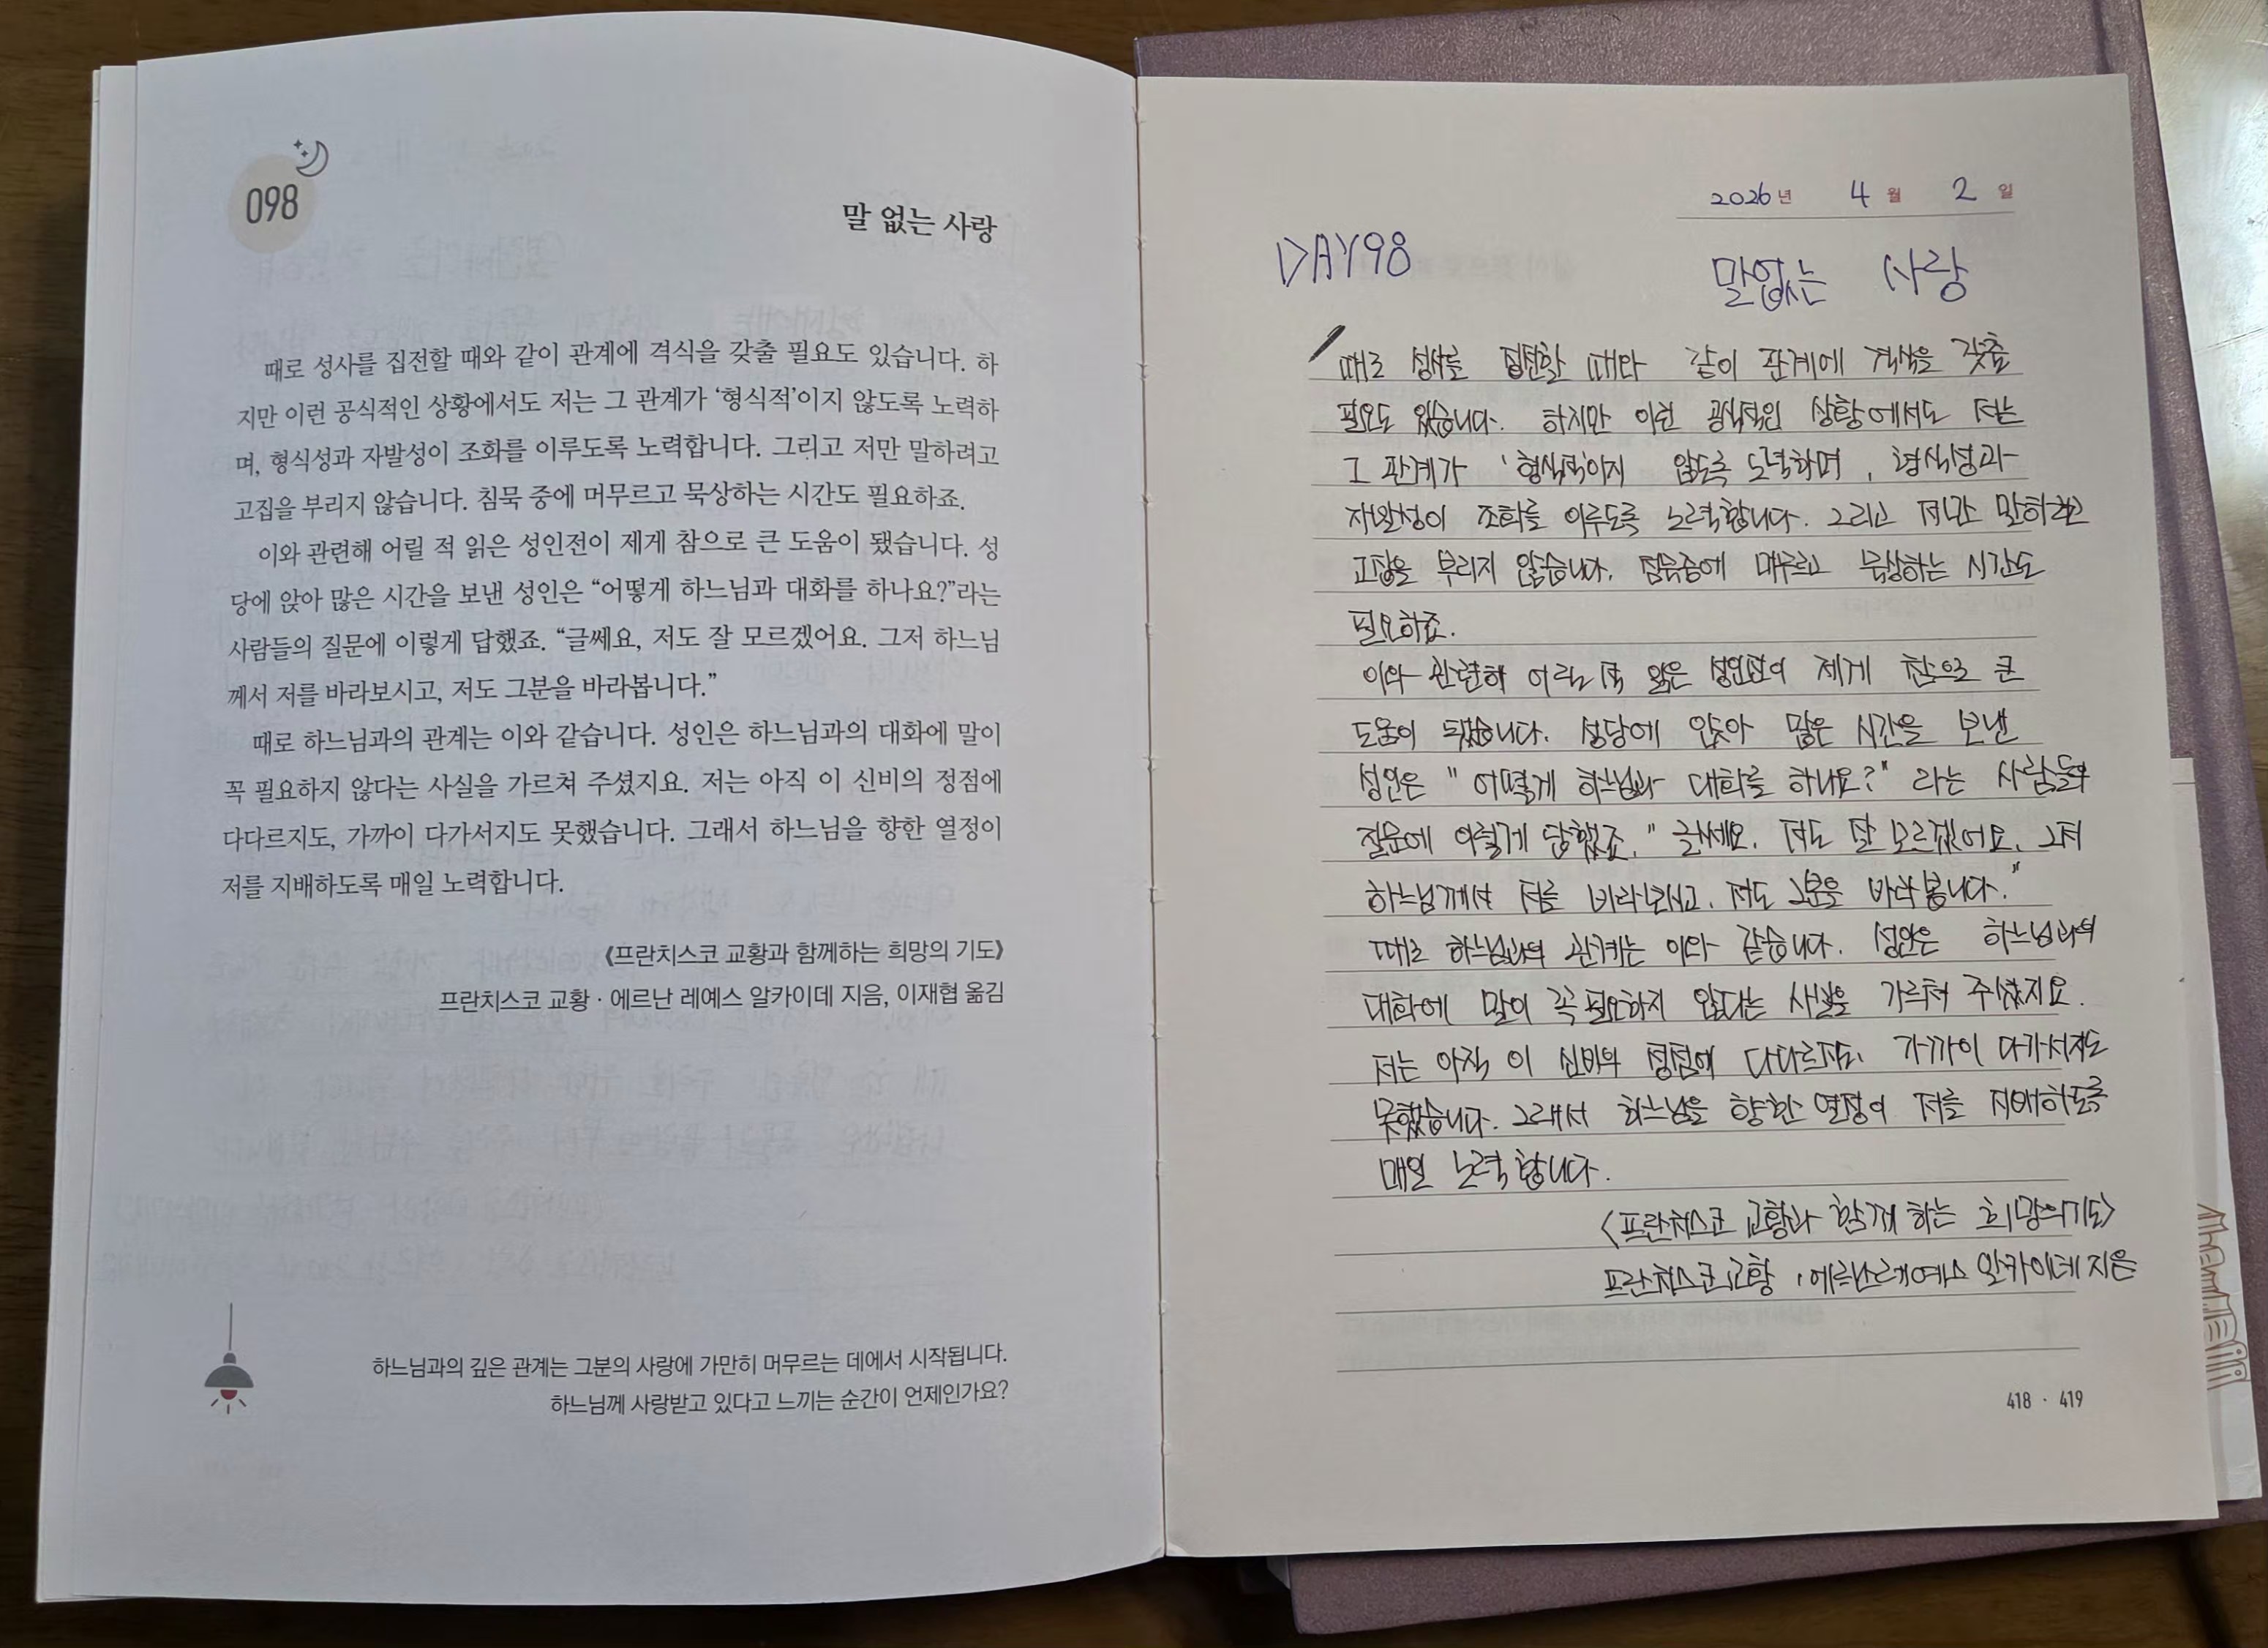 098
말 없는 사랑
때로 성사를 집전할 때와 같이 관계에 격식을 갖출 필요도 있습니다. 하
지만 이런 공식적인 상황에서도 저는 그 관계가 ‘형식적’이지 않도록 노력하
며, 형식성과 자발성이 조화를 이루도록 노력합니다. 그리고 저만 말하려고
고집을 부리지 않습니다. 침묵 중에 머무르고 묵상하는 시간도 필요하죠.
이와 관련해 어릴 적 읽은 성인전이 제게 참으로 큰 도움이 됐습니다. 성
당에 앉아 많은 시간을 보낸 성인은 “어떻게 하느님과 대화를 하나요?”라는
사람들의 질문에 이렇게 답했죠. “글쎄요, 저도 잘 모르겠어요. 그저 하느님
께서 저를 바라보시고, 저도 그분을 바라봅니다.”
때로 하느님과의 관계는 이와 같습니다. 성인은 하느님과의 대화에 말이
꼭 필요하지 않다는 사실을 가르쳐 주셨지요. 저는 아직 이 신비의 정점에
다다르지도, 가까이 다가서지도 못했습니다. 그래서 하느님을 향한 열정이
저를 지배하도록 매일 노력합니다.
《프란치스코 교황과 함께하는 희망의 기도》
프란치스코 교황 · 에르난 레예스 알카이데 지음, 이재협 옮김
하느님과의 깊은 관계는 그분의 사랑에 가만히 머무르는 데에서 시작됩니다.
하느님께 사랑받고 있다고 느끼는 순간이 언제인가요?
2026년 4월 2일
DAY98
말없는 사랑
때로 성사를 집전할 때와 같이 관계에 격식을 갖출
필요도 있습니다. 하지만 이런 공식적인 상황에서도 저는
그 관계가 '형식적'이지 않도록 노력하며, 형식성과
자발성이 조화를 이루도록 노력합니다. 그리고 저만 말하려고
고집을 부리지 않습니다. 침묵중에 머무르고 묵상하는 시간도
필요하죠.
이와 관련해 어릴 적 읽은 성인전이 제게 참으로 큰
도움이 됐습니다. 성당에 앉아 많은 시간을 보낸
성인은 " 어떻게 하느님과 대화를 하나요?" 라는 사람들의
질문에 이렇게 답했죠. " 글쎄요. 저도 잘 모르겠어요. 그저
하느님께서 저를 바라보시고. 저도 그분을 바라봅니다."
때로 하느님과의 관계는 이와 같습니다. 성인은 하느님과의
대화에 말이 꼭 필요하지 않다는 사실을 가르쳐 주셨지요.
저는 아직 이 신비의 정점에 다다르지도, 가까이 다가서지도
못했습니다. 그래서 하느님을 향한 열정이 저를 지배하도록
매일 노력합니다.
<프란치스코 교황과 함께 하는 희망의기도>
프란치스코교황 · 에르난레예스 알카이데 지음
418 · 419